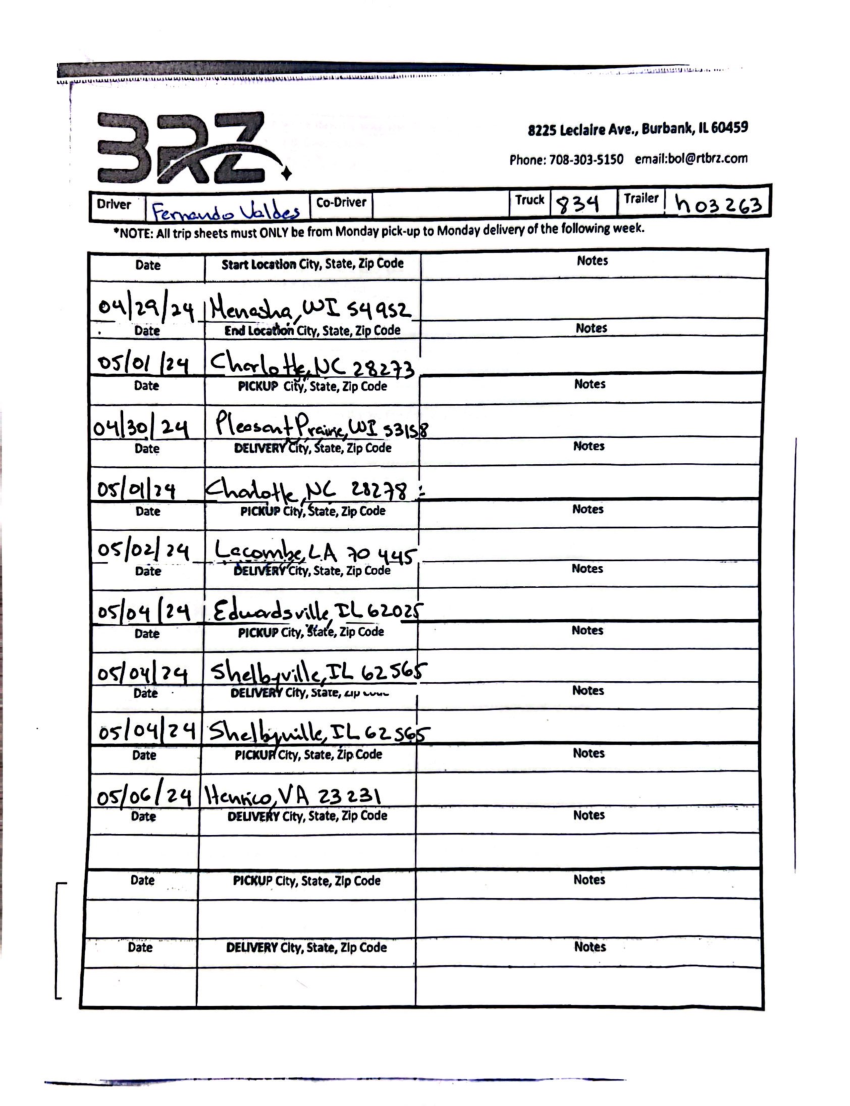 BRZ
8225 Leclaire Ave., Burbank, IL 60459
Phone: 708-303-5150 email:bol@rtbrz.com
Driver Fernando Valdes Co-Driver Truck 834 Trailer h03263
*NOTE: All trip sheets must ONLY be from Monday pick-up to Monday delivery of the following week.
Date Start Location City, State, Zip Code Notes
04/29/24 Menasha, WI 54952
Date End Location City, State, Zip Code Notes
05/01/24 Charlotte, NC 28273
Date PICKUP City, State, Zip Code Notes
04/30/24 Pleasant Prairie, WI 53158
Date DELIVERY City, State, Zip Code Notes
05/01/24 Charlotte, NC 28278
Date PICKUP City, State, Zip Code Notes
05/02/24 Lacombe, LA 70445
Date DELIVERY City, State, Zip Code Notes
05/04/24 Edwardsville, IL 62025
Date PICKUP City, State, Zip Code Notes
05/04/24 Shelbyville, IL 62565
Date DELIVERY City, State, Zip Notes
05/04/24 Shelbyville, IL 62565
Date PICKUP City, State, Zip Code Notes
05/06/24 Henrico, VA 23231
Date DELIVERY City, State, Zip Code Notes
Date PICKUP City, State, Zip Code Notes
Date DELIVERY City, State, Zip Code Notes